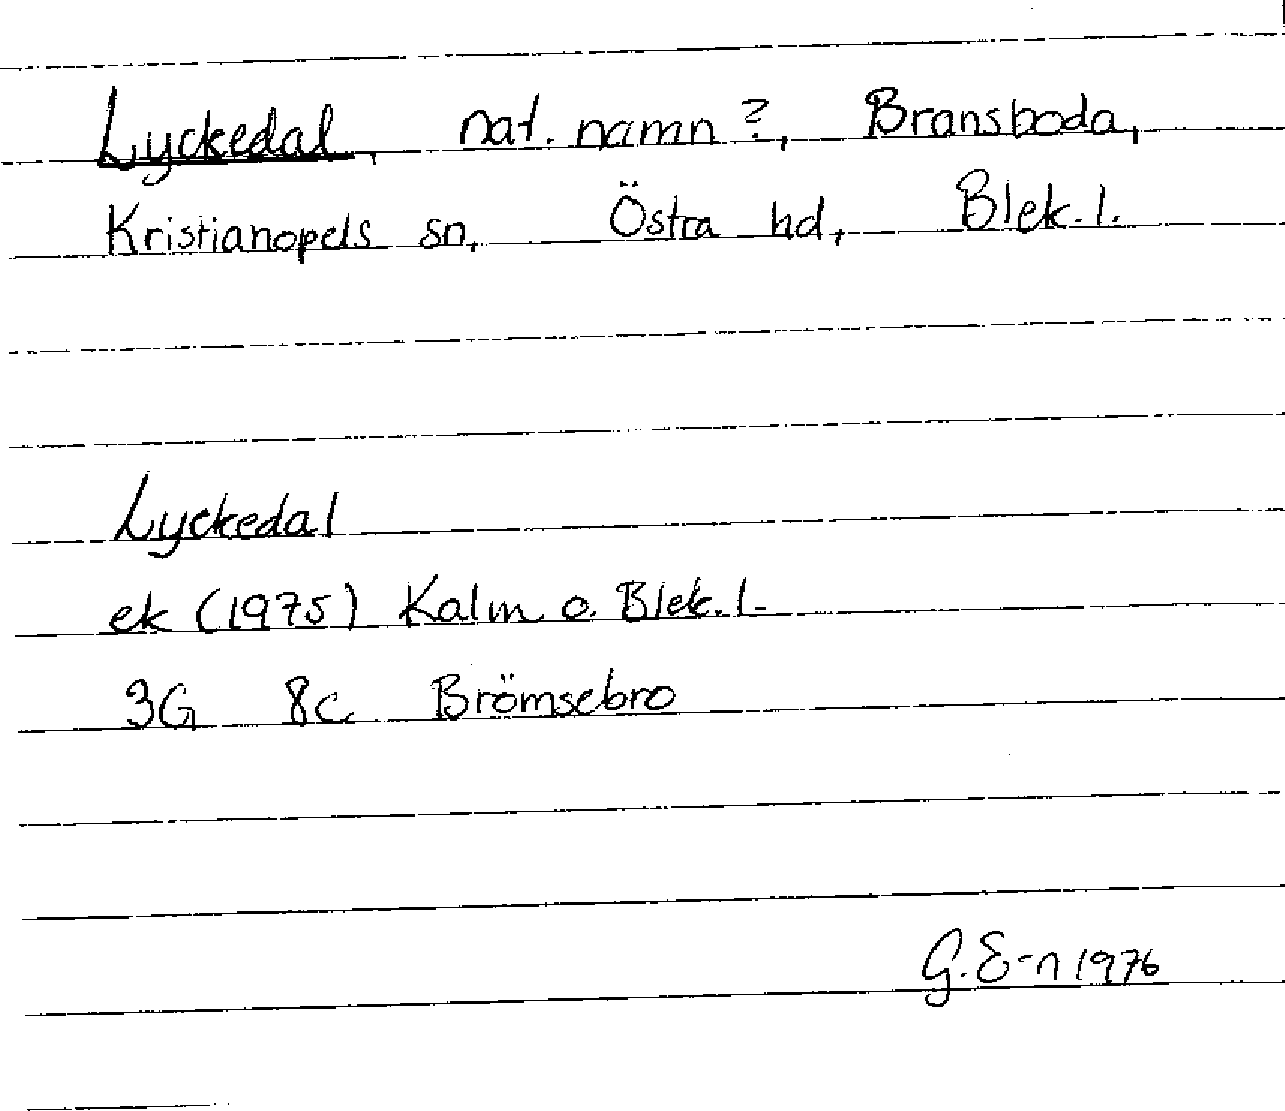 Lyckedal, nat. namn?, Bransboda,
Kristianopels sn, Östra hd, Blek. l.
Lyckedal
ek (1975) Kalm o. Blek. l.
3G 8c Brömsebro
G. E-n 1976